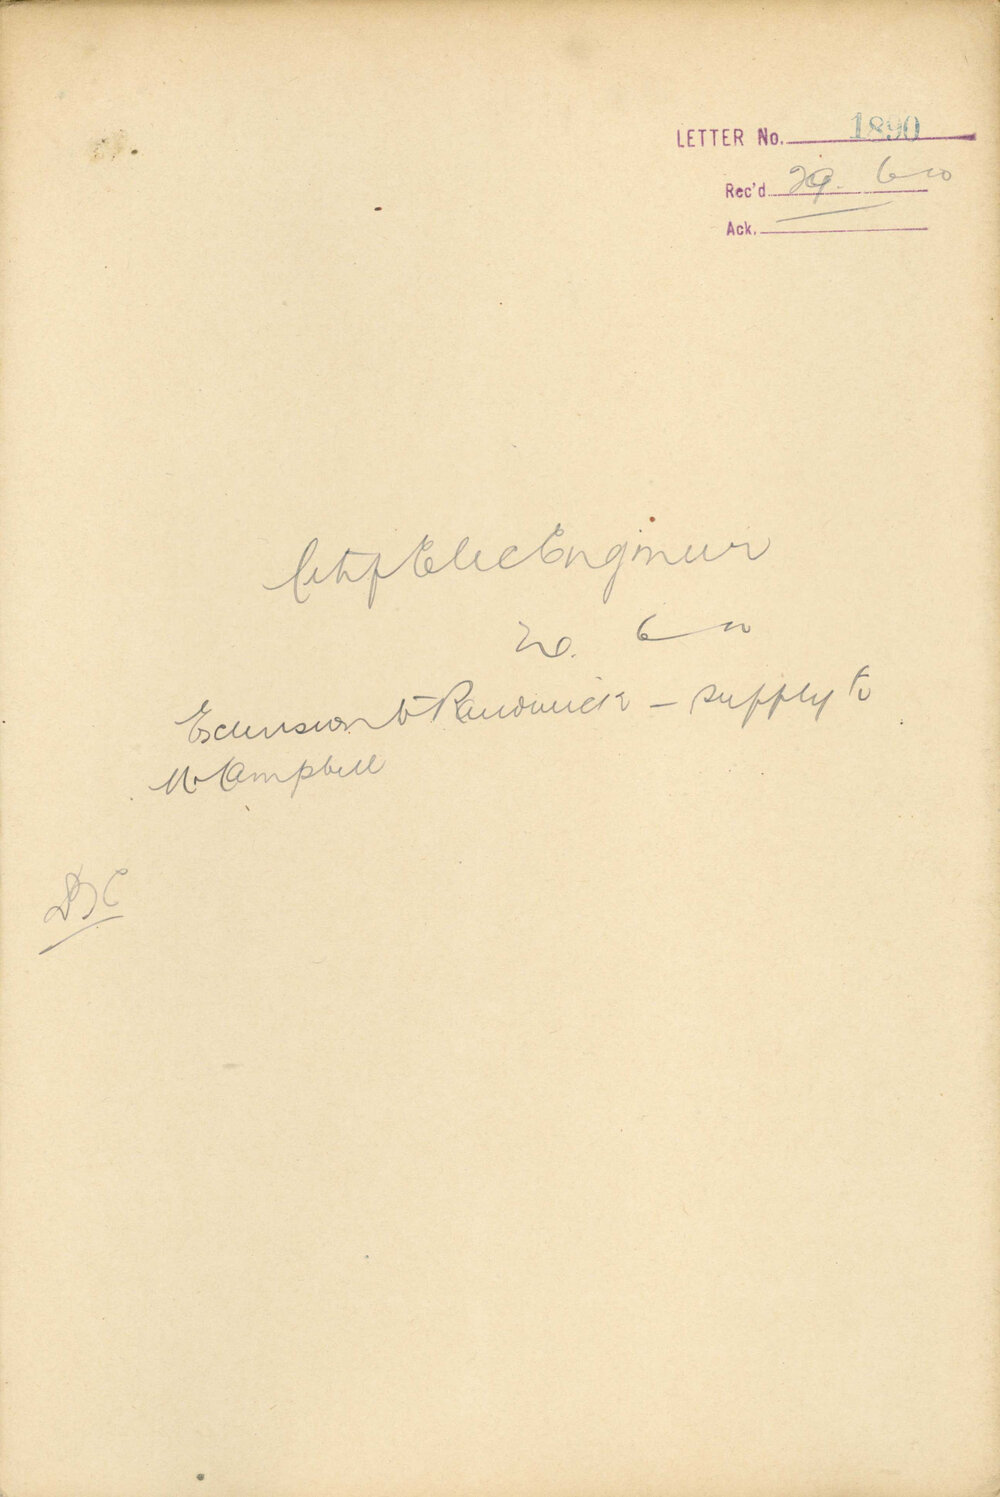 LETTER No. 1890
Rec'd 29. 6 10
Ack.
City Elec Engineer
6 10
Extension to Randwick - supply to
Mr Campbell